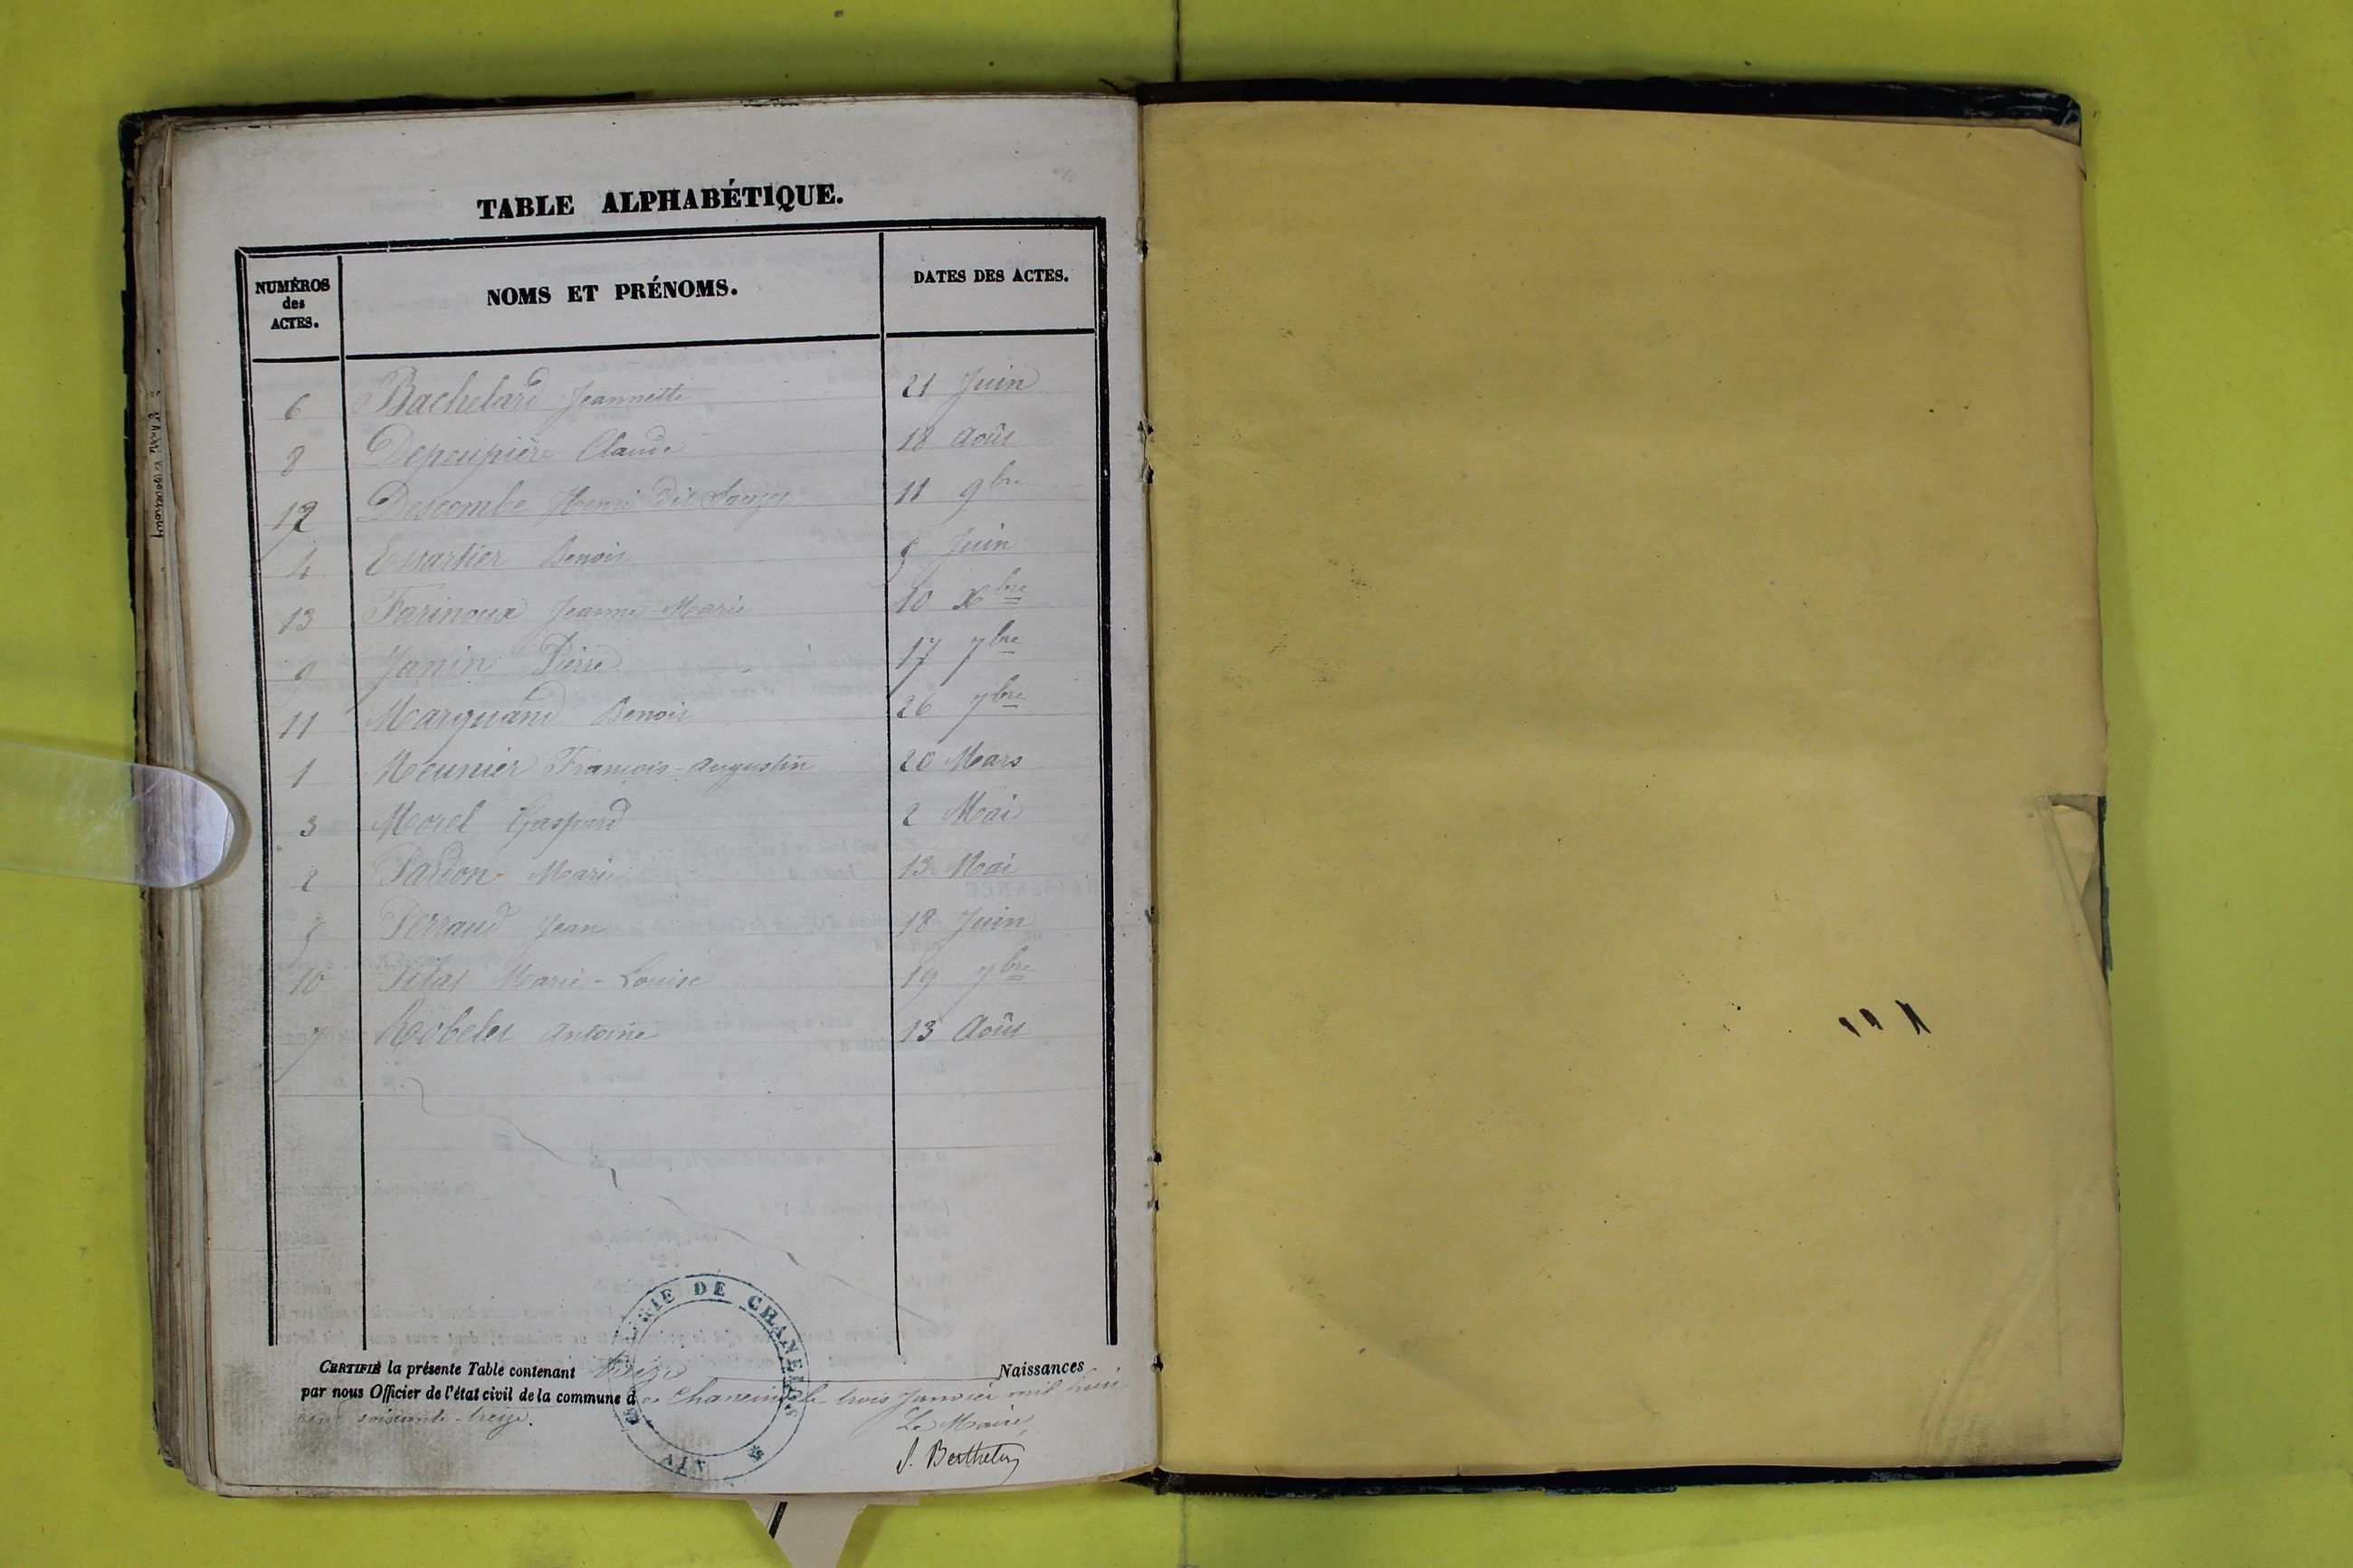 TABLE ALPHABÉTIQUE.
NUMÉROS des ACTES. NOMS ET PRÉNOMS. DATES DES ACTES.
6 Bachelard Jeannette 21 Juin
8 Depeupière Claude 18 Août
12 Descombe Henri dit 11 9bre
4 Benoit 5 Juin
13 Farinoux Jeanne-Marie 10 Xbre
9 Janin Pierre 17 7bre
11 Marquand Benoit 26 7bre
1 Meunier François-Augustin 20 Mars
3 Morel Gaspard 2 Mai
2 Pardon Marie 13 Mai
5 Perraud Jean 18 Juin
10 Marie-Louise 19 7bre
7 Robelet Antoine 13 Août
CERTIFIÉ la présente Table contenant treize Naissances
par nous Officier de l'état civil de la commune de Chaneins le trois Janvier mil huit
cent soixante-treize.
Le Maire,
MAIRIE DE CHANEINS
AIN